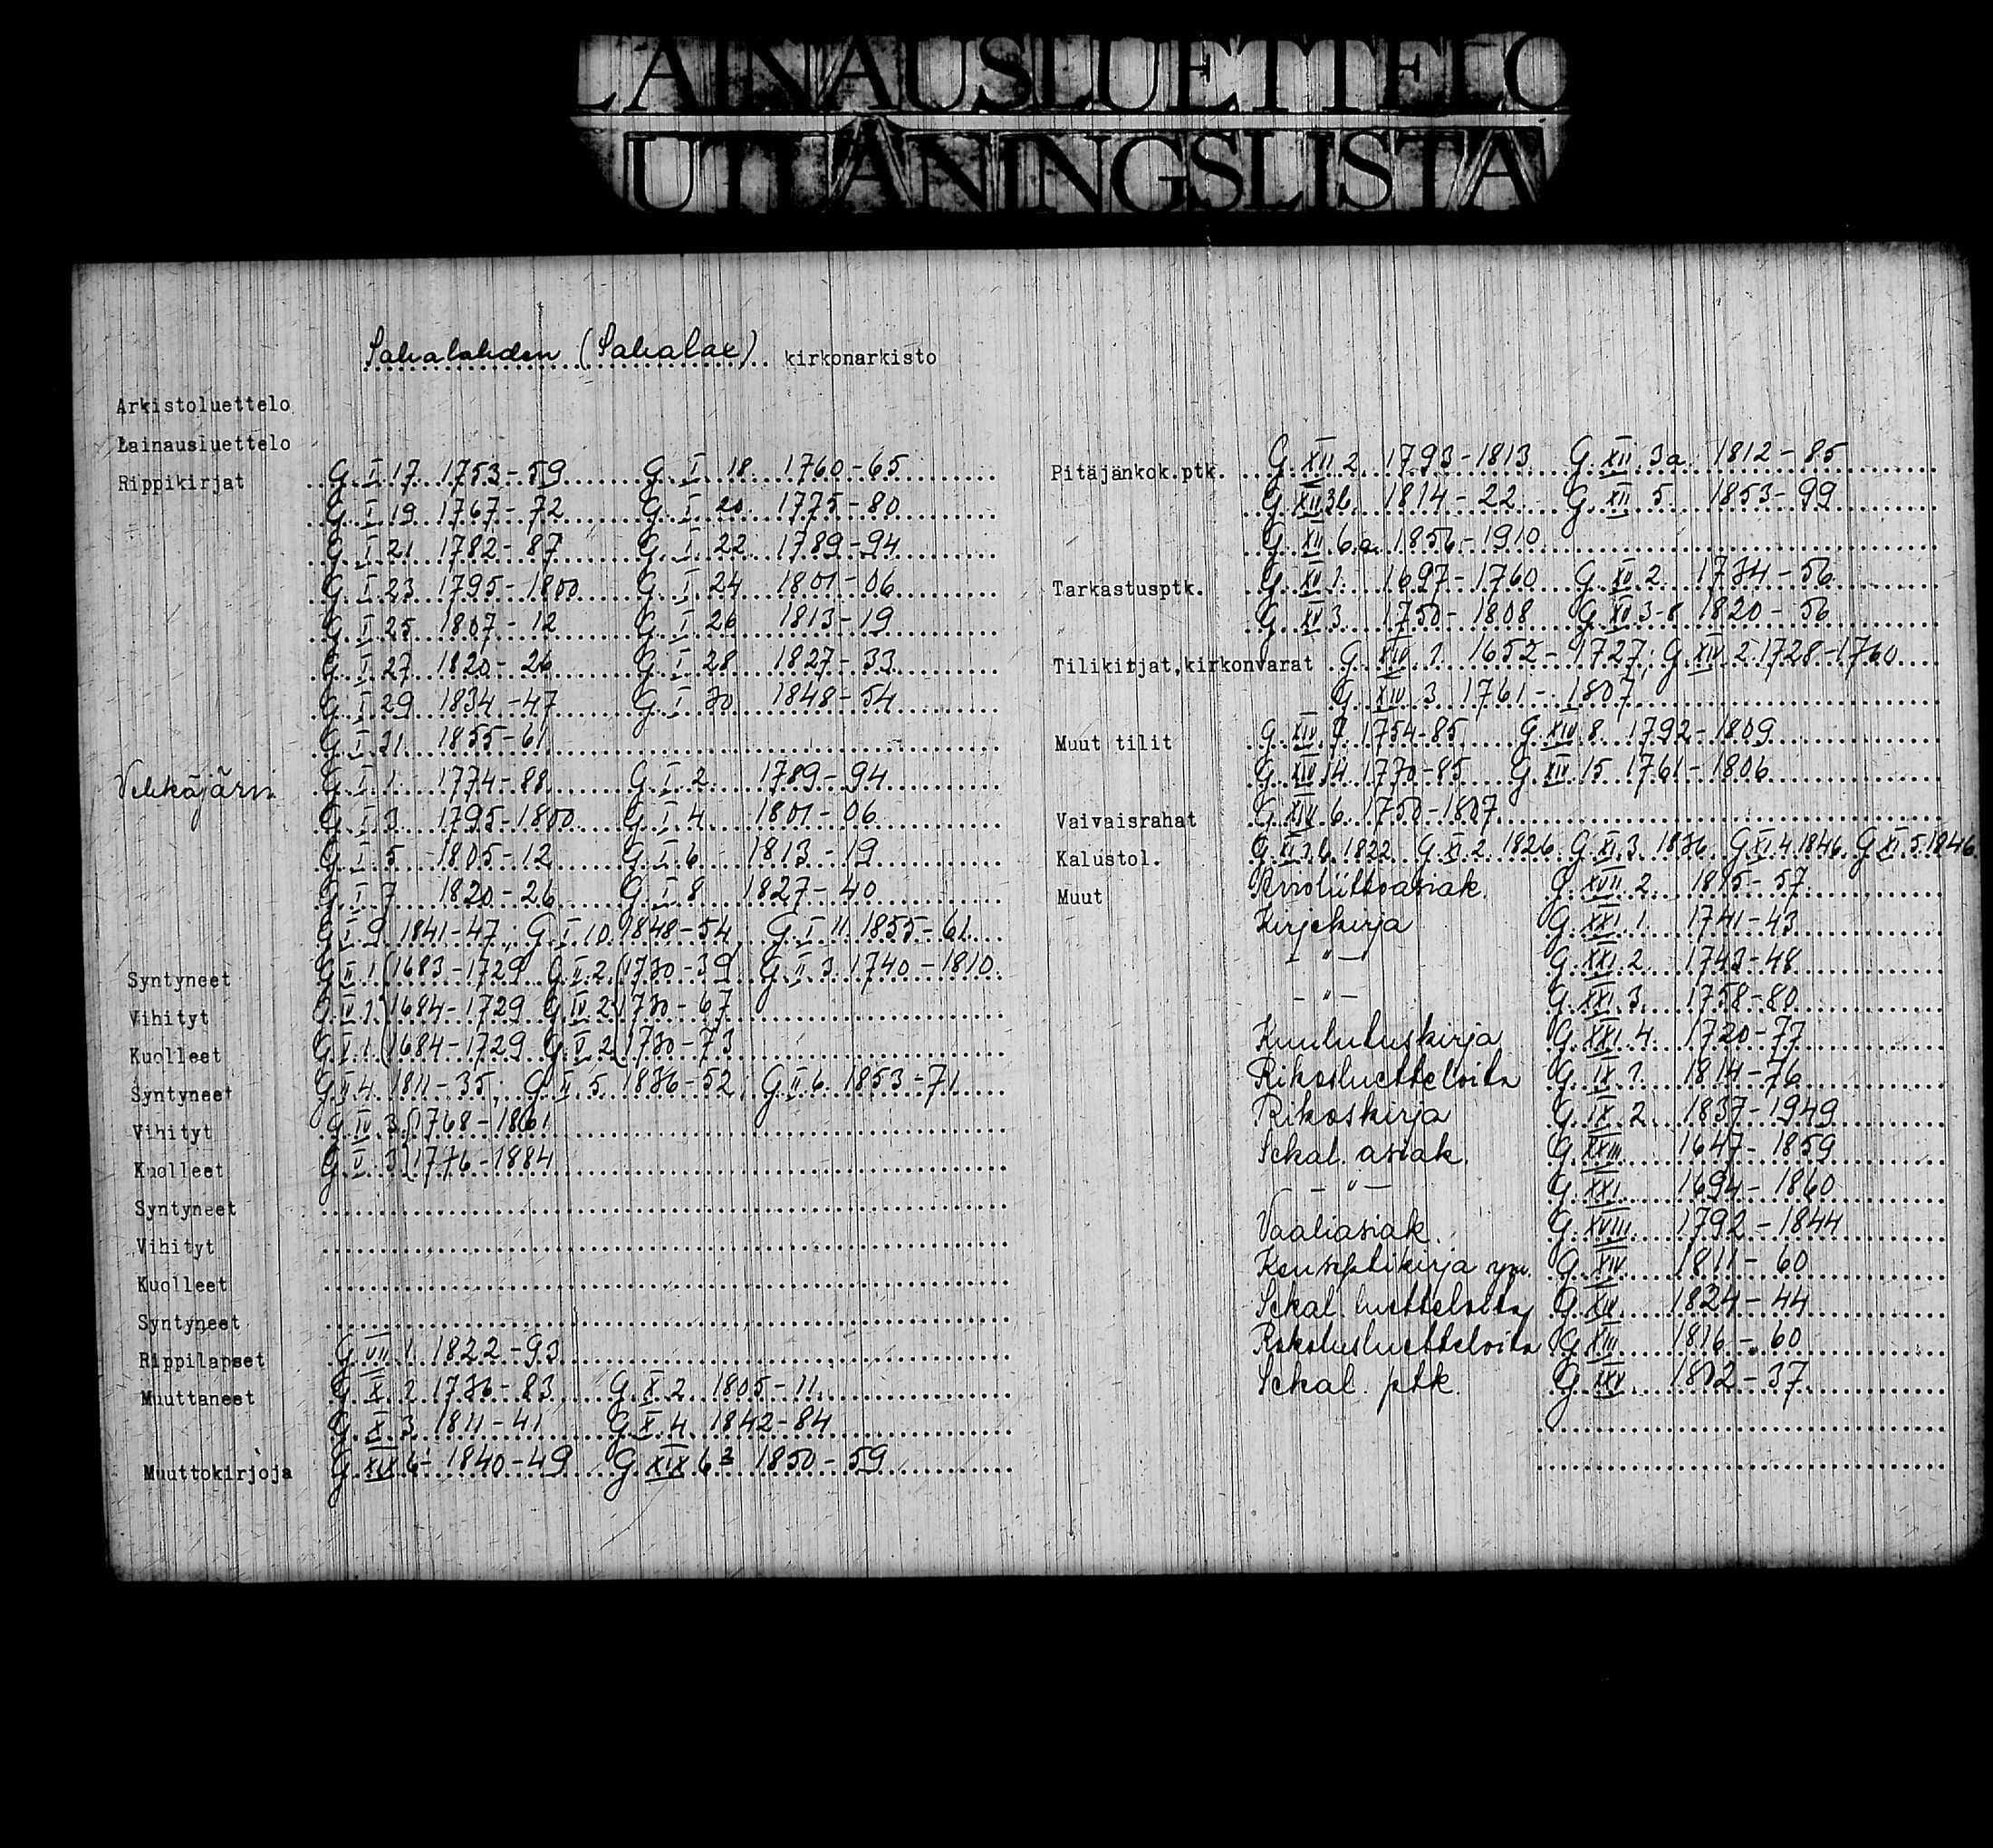 LAINAUSLUETTELO
UTLÅNINGSLISTA
Sahalahden (Sahalax) kirkonarkisto
Arkistoluettelo
Lainausluettelo
Rippikirjat G I 17 1753-59 G I 18 1760-65
G I 19 1767-72 G I 20 1775-80
G I 21 1782-87 G I 22 1789-94
G I 23 1795-1800 G I 24 1801-06
G I 25 1807-12 G I 26 1813-19
G I 27 1820-26 G I 28 1827-33
G I 29 1834-47 G I 30 1848-54
G I 31 1855-61
Vehkäjärvi G I 1 1774-88 G I 2 1789-94
G I 3 1795-1800 G I 4 1801-06
G I 5 1805-12 G I 6 1813-19
G I 7 1820-26 G I 8 1827-40
G I 9 1841-47; G I 10 1848-54 G I 11 1855-61
Syntyneet G II 1 (1683-1729 G II 2 (1730-39 G II 3 1740-1810
Vihityt G IV 1 (1684-1729 G IV 2 (1730-67
Kuolleet G V 1 (1684-1729 G V 2 (1730-73
Syntyneet G II 4 1811-35; G II 5 1836-52; G II 6 1853-71
Vihityt G IV 3 (1768-1861
Kuolleet G V 3 (1776-1884
Syntyneet
Vihityt
Kuolleet
Syntyneet
Rippilapset G VII 1 1822-93
Muuttaneet G X 1736-83 G X 2 1805-11
G X 3 1811-41 G X 4 1842-84
Muuttokirjoja G XIX 6 1840-49 G XIX 6 1850-59
Pitäjänkok.ptk. G XII 2 1793-1813 G XII 3a 1812-85
G XII 3b 1814-22 G XII 5 1853-99
G XII 6a 1856-1910
Tarkastusptk. G XV 1 1697-1760 G XV 2 1734-56
G XV 3 1750-1808 G XV 3-8 1820-56
Tilikirjat,kirkonvarat G XIV 1 1652-1727; G XIV 2 1728-1760
G XIV 3 1761-1807
Muut tilit G XIV 7 1754-85 G XIV 8 1792-1809
G XIV 14 1770-85 G XIV 15 1761-1806
Vaivaisrahat G XIV 6 1750-1807
Kalustol. G XII 3b 1822 G XI 2 1826 G XI 3 1836 G XI 4 1846 G XI 5 1846
Muut Avioliittoasiak. G XVII 2 1815-57
Kirjekirja G XXI 1 1741-43
- " - G XXI 2 1743-48
- " - G XXI 3 1758-80
Kuulutuskirja G XXI 4 1720-77
Rikosluetteloita G IX 1 1814-76
Rikoskirja G IX 2 1837-1949
Sekal. asiak. G XXIII 1647-1859
- " - G XXI 1694-1860
Vaaliasiak. G XVIII 1792-1844
Konseptikirja ym. G XIV 1811-60
Sekal. luetteloita G XV 1824-44
Rokotusluetteloita G XIII 1816-60
Sekal. ptk. G XXV 1812-37